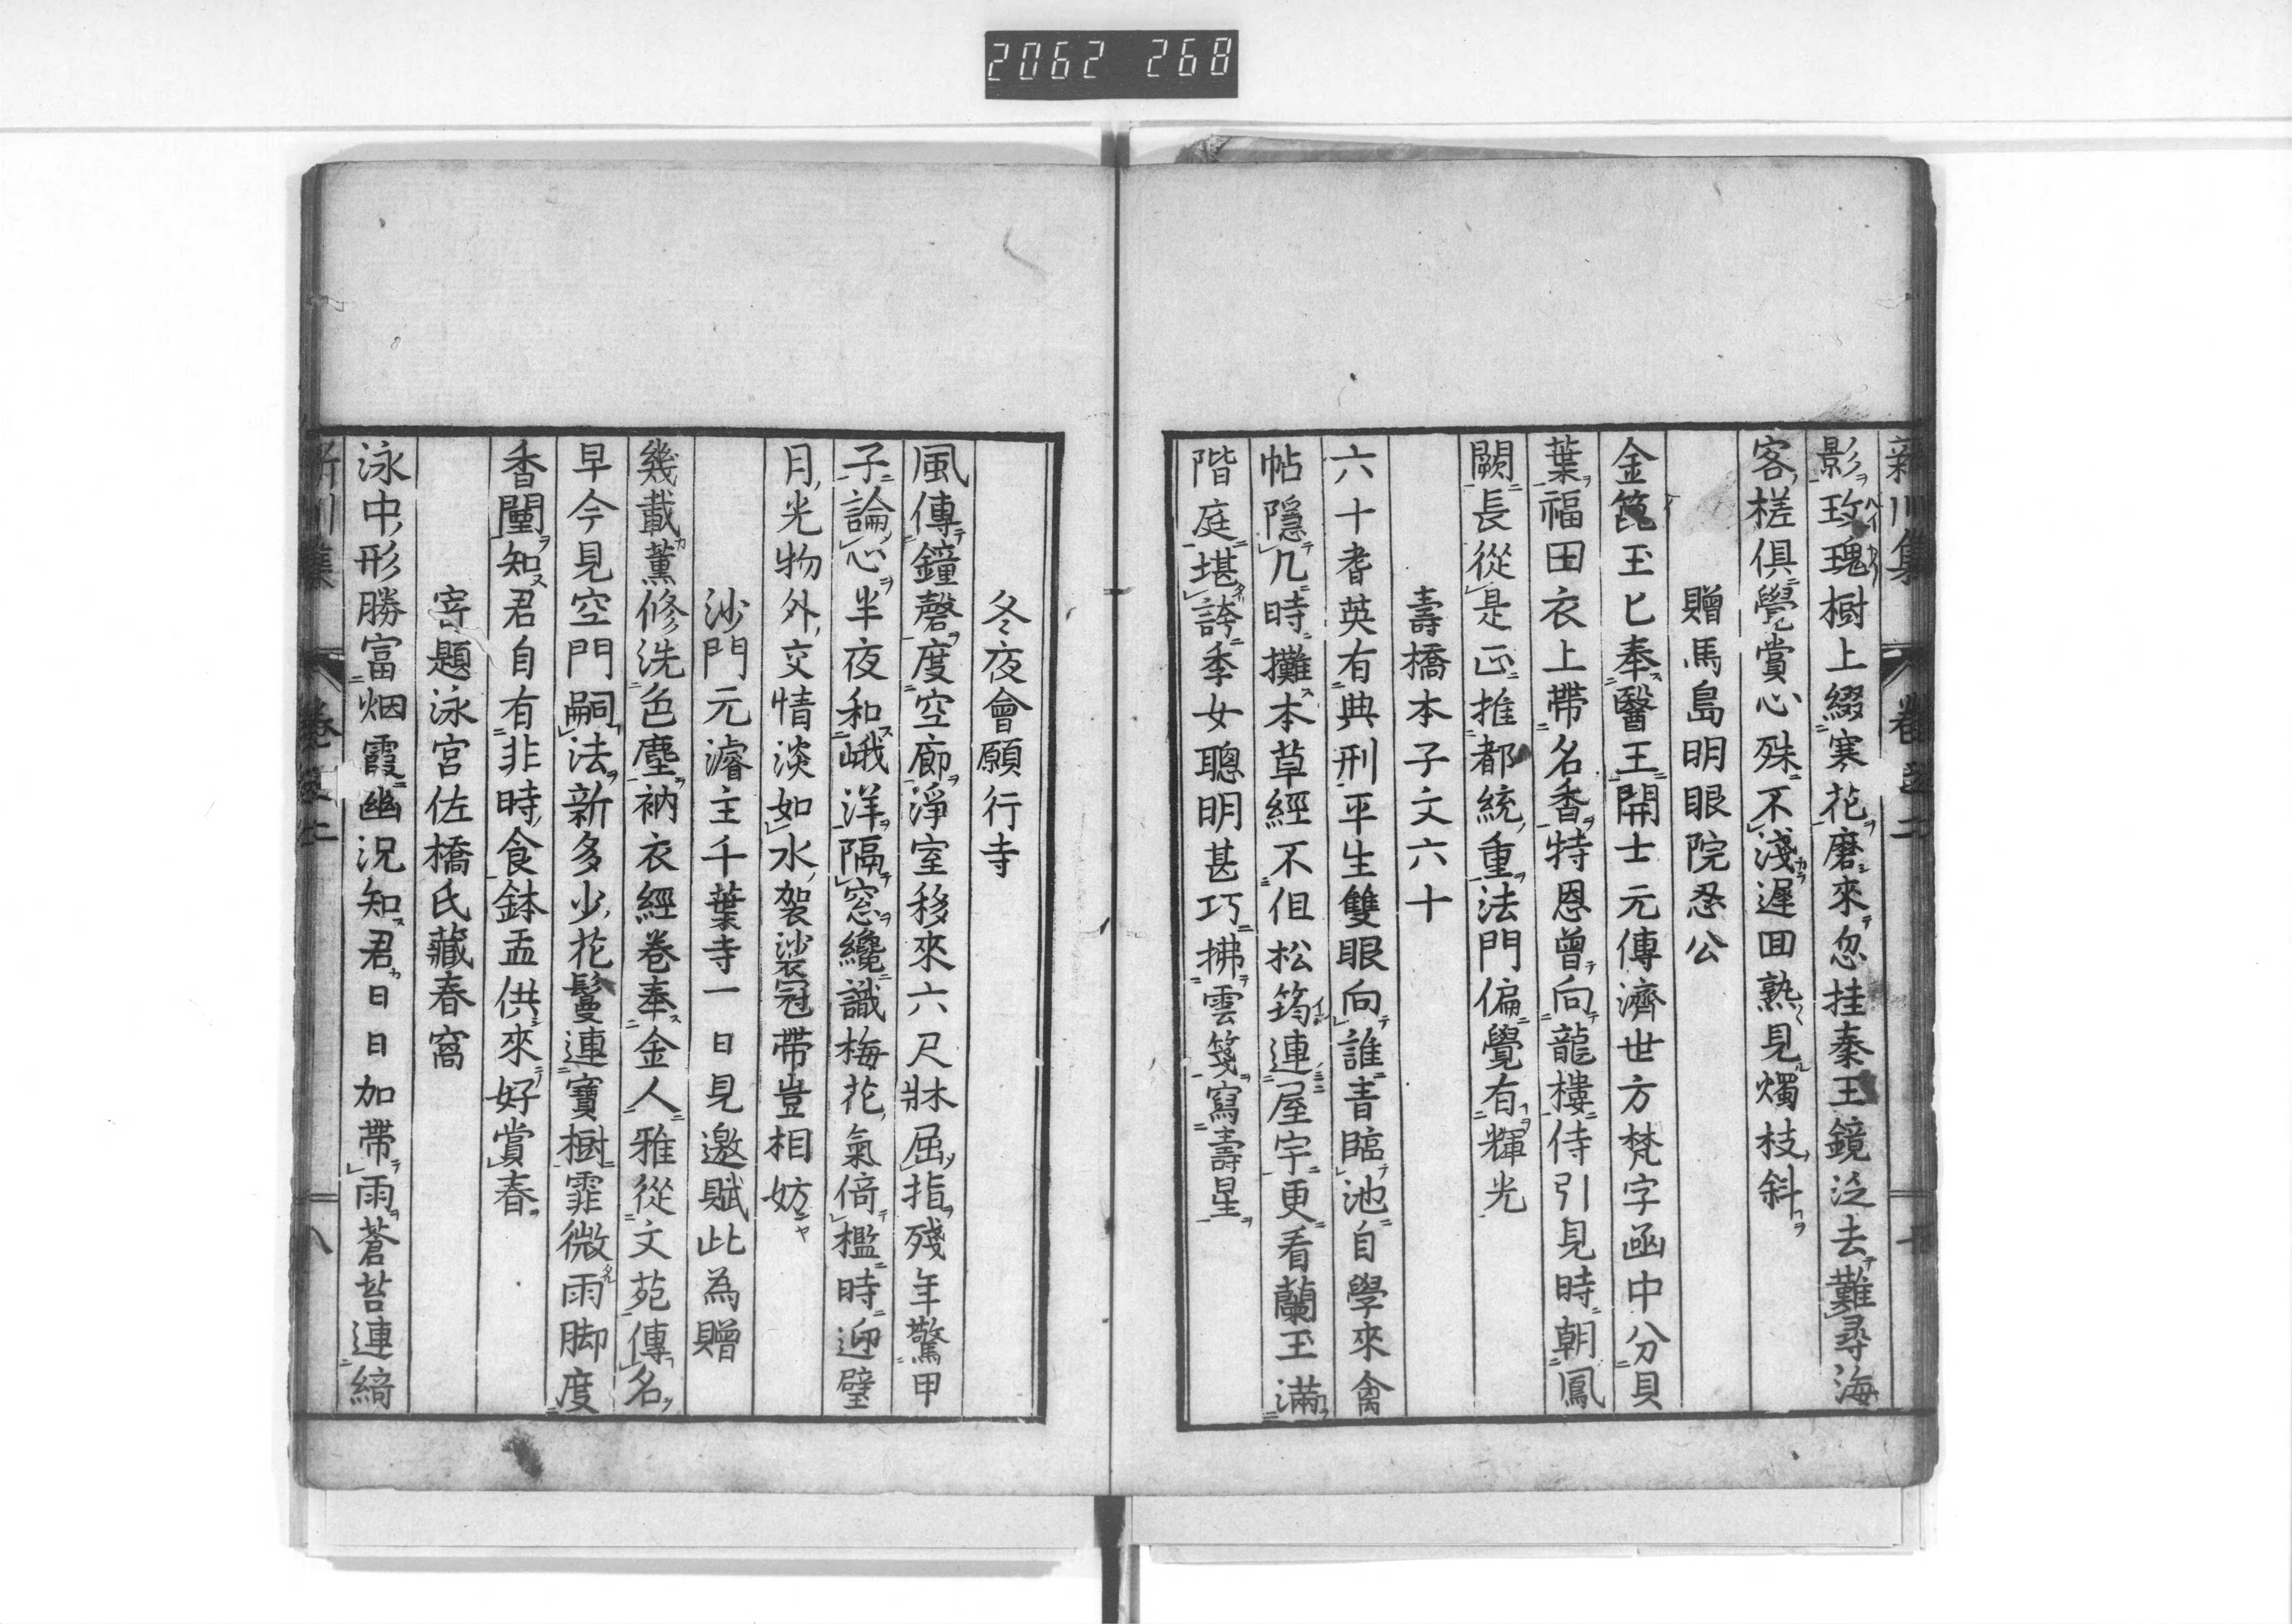 2062 268
影玫瑰樹上綴寒花磨來忽挂秦王鏡泛去難尋海
客槎俱覺賞心殊不淺遲回熟見燭枝斜
贈馬島明眼院忍公
金篦玉匕奉醫王開士元傳濟世方梵字函中分貝
葉福田衣上帶名香特恩曾向龍樓侍引見時朝鳳
闕長從是正推都統重法門偏覺有輝光
壽橋本子文六十
六十耆英有典刑平生雙眼向誰青臨池自學來禽
帖隱几時攤本草經不但松筠連屋宇更看蘭玉滿
階庭堪誇季女聰明甚巧拂雲箋寫壽星
冬夜會願行寺
風傳鐘磬度空廊淨室移來六尺牀屈指殘年驚甲
子論心半夜和峨洋隔窓纔識梅花氣倚檻時迎璧
月光物外交情淡如水袈裟冠帶豈相妨
沙門元濬主千葉寺一日見邀賦此為贈
幾載薰修洗色塵衲衣經卷奉金人雅從文苑傳名
早今見空門嗣法新多少花鬘連寶樹霏微雨脚度
香闉知君自有非時食鉢盂供來好賞春
寄題泳宮佐橋氏藏春窩
泳中形勝富烟霞幽況知君日日加帶雨蒼苔連綺
新川集 卷之二 八